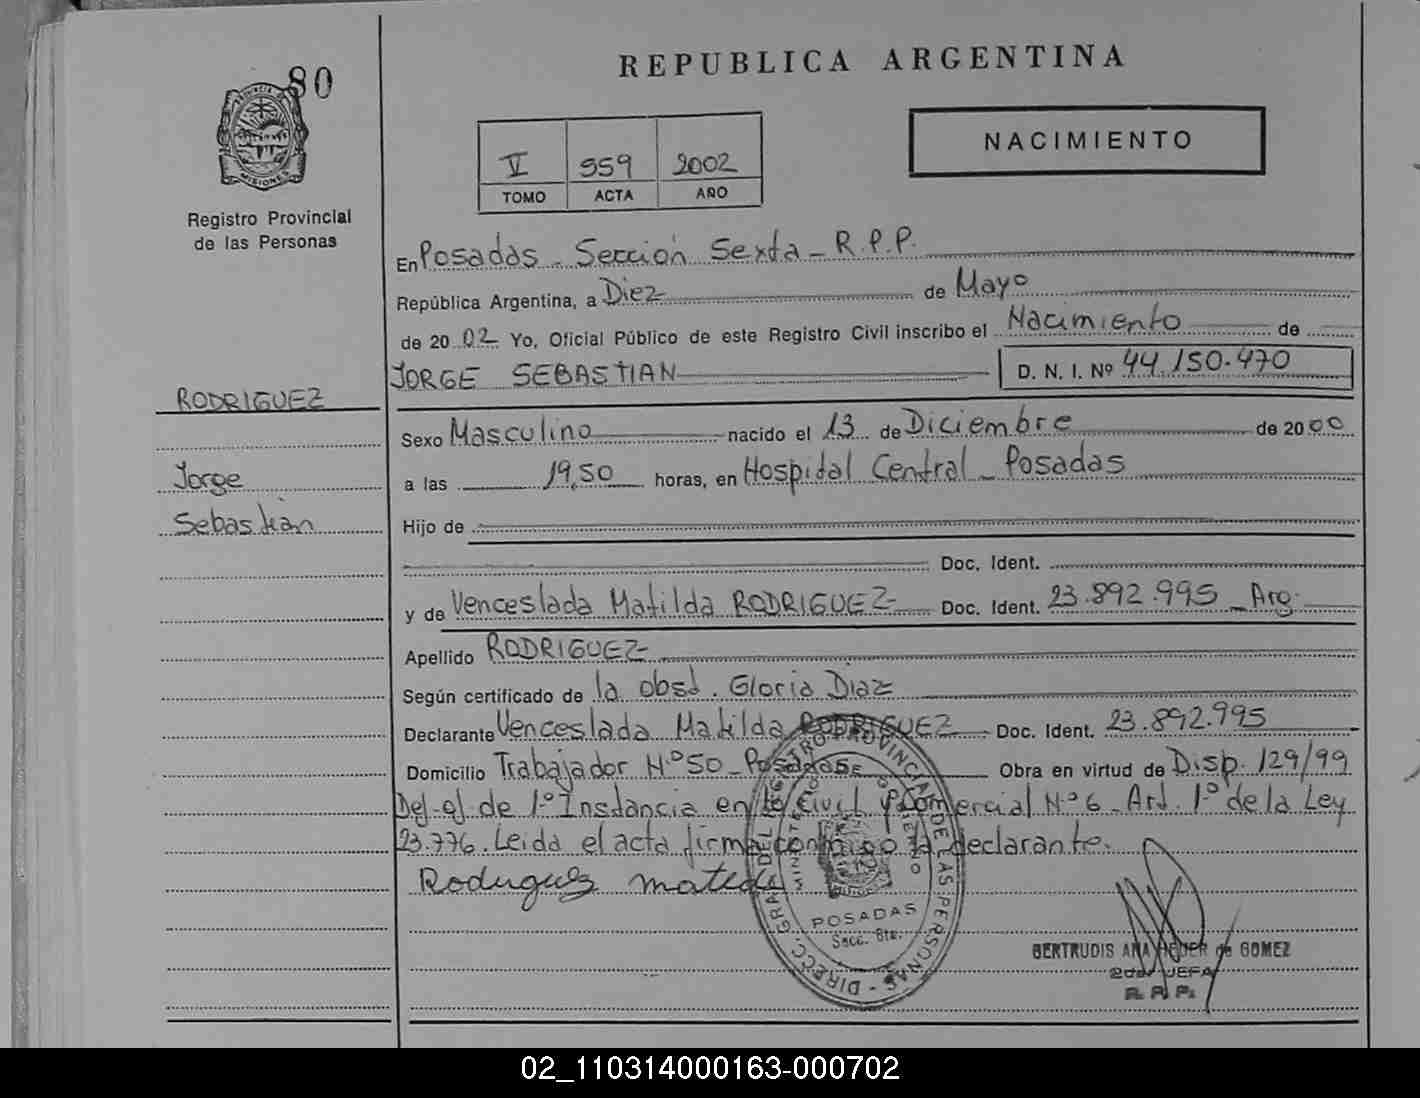 80
REPUBLICA ARGENTINA
PROVINCIA DE
MISIONES
Registro Provincial
de las Personas
V 559 2002
TOMO ACTA AÑO
NACIMIENTO
En Posadas - Sección Sexta - R.P.P.
República Argentina, a Diez de Mayo
de 2002 Yo, Oficial Público de este Registro Civil inscribo el Nacimiento de
JORGE SEBASTIAN D. N. I. Nº 44.150.470
RODRIGUEZ
Jorge
Sebastián
Sexo Masculino nacido el 13 de Diciembre de 2000
a las 19,50 horas, en Hospital Central - Posadas
Hijo de
Doc. Ident.
y de Venceslada Matilda RODRIGUEZ Doc. Ident. 23.892.995 - Arg.
Apellido RODRIGUEZ
Según certificado de la obst. Gloria Diaz
Declarante Venceslada Matilda RODRIGUEZ Doc. Ident. 23.892.995
Domicilio Trabajador Nº 50 - Posadas Obra en virtud de Disp. 129/99
Def. of de 1º Instancia en lo Civil y Comercial Nº 6 - Art. 1º de la Ley
23.776. Leida el acta firma conmigo la declarante.
Rodriguez
DIRECC. GRAL. DEL REGISTRO PROVINCIAL DE LAS PERSONAS
POSADAS
Secc. 6ta.
GERTRUDIS ANA de GOMEZ
2da. JEFA
R. P. P.
02_110314000163-000702